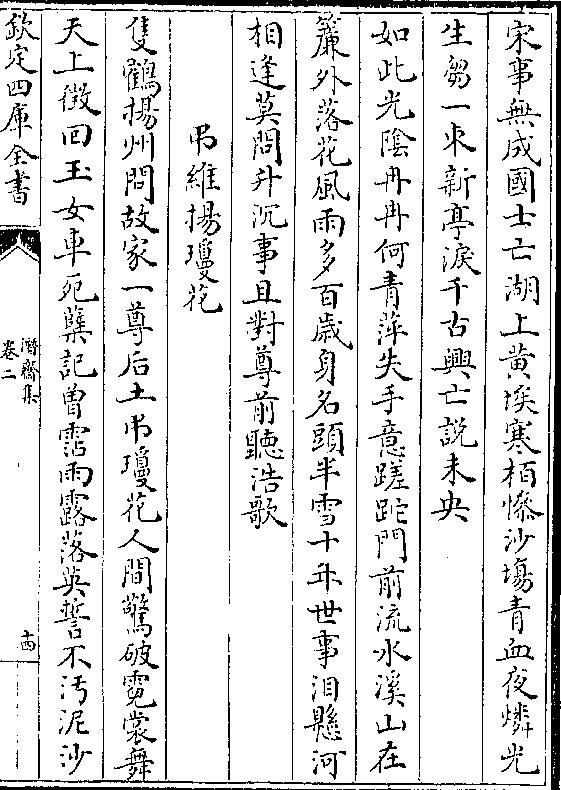 宋事無成國士亡湖上黄埃寒栢慘沙塲青血夜燐光
生芻一束新亭淚千古興亡說未央
如此光陰冉冉何青萍失手意蹉跎門前流水溪山在
簾外落花風雨多百歲身名頭半雪十年世事泪懸河
相逢莫問升沉事且對尊前聽浩歌
弔維揚瓊花
隻鶴揚州問故家一尊后土弔瓊花人間驚破霓裳舞
天上徴回玉女車死蘖記曽霑雨露落英誓不汚泥沙
欽定四庫全書
潛齋集
卷二
十四